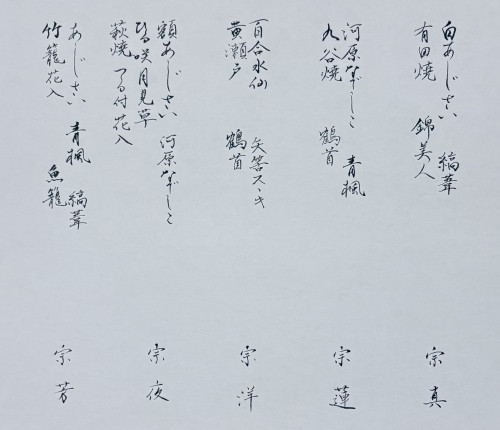 白あじさい 縞葦
有田焼 錦美人
宗真
河原なでしこ 青楓
九谷焼 鶴首
宗蓮
百合水仙 矢筈スヽキ
黄瀬戸 鶴首
宗洋
額あじさい 河原なでしこ
ひる咲月見草
萩焼 つる付花入
宗夜
あじさい 青楓 縞葦
竹籠花入 魚籠
宗芳